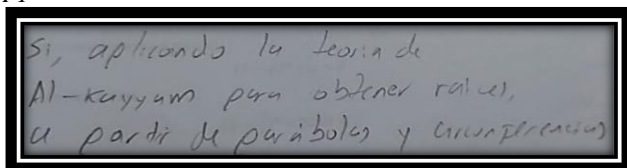 Si, aplicando la teoria de
Al-Kayyam para obtener raices,
a partir de parábolas y circunferencias